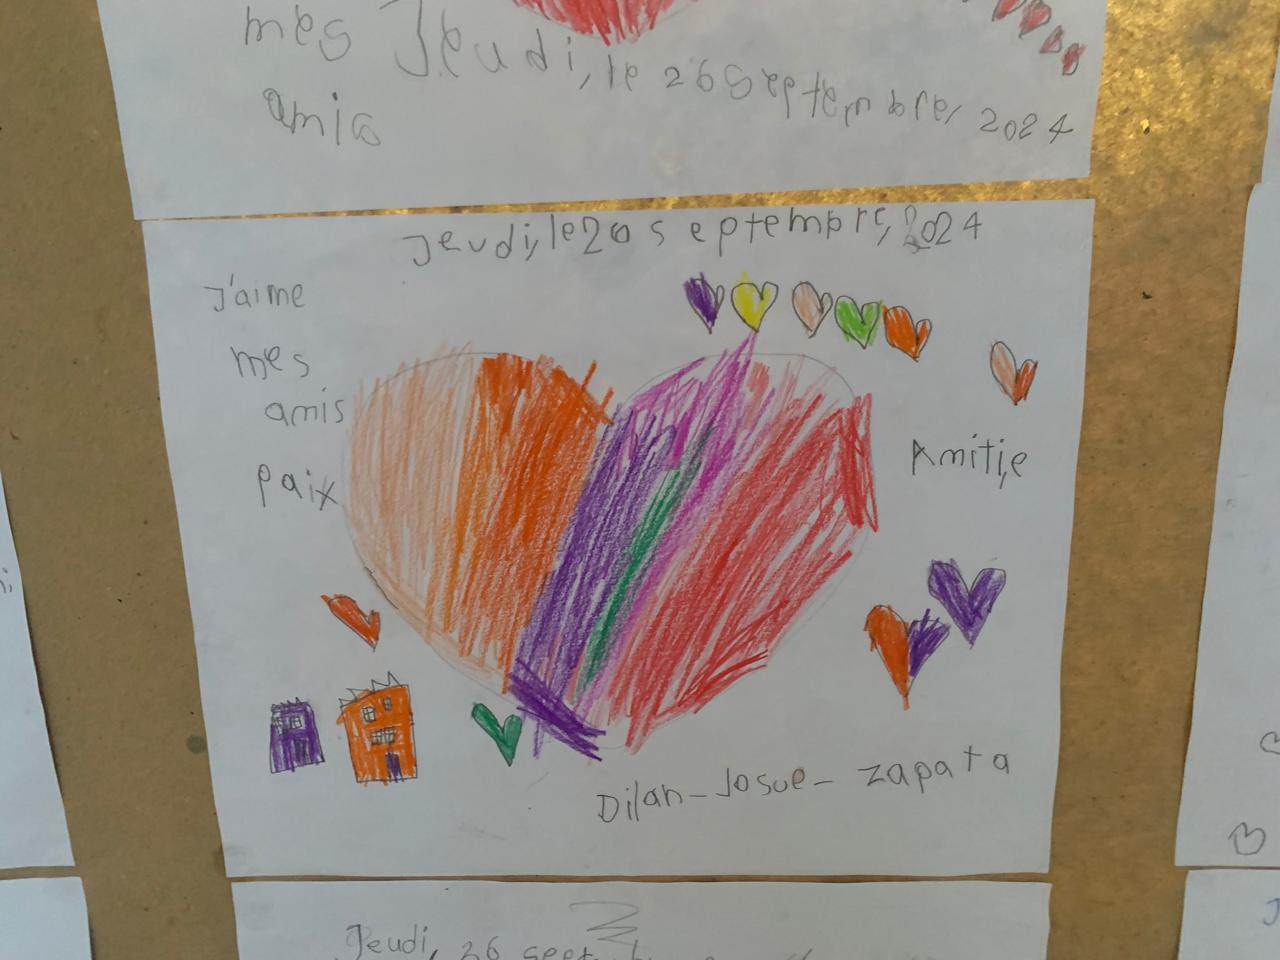 mes Jeudi, le 26 septembre, 2024
amis
Jeudi, le 20 septembre, 2024
J'aime
mes
amis
paix
Amitie
Dilan-Josue-zapata
Jeudi, 26